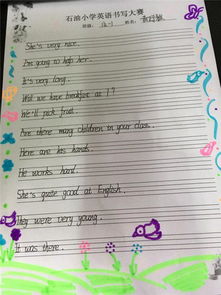 石油小学英语书写大赛
班级: 姓名:
She's very nice.
I'm going to help her.
It's very long.
Will we have breakfast at 7?
We'll pick fruit.
Are there many children in your class.
Here are his hands.
He works hard.
She's quite good at English.
They were very young.
It was there.